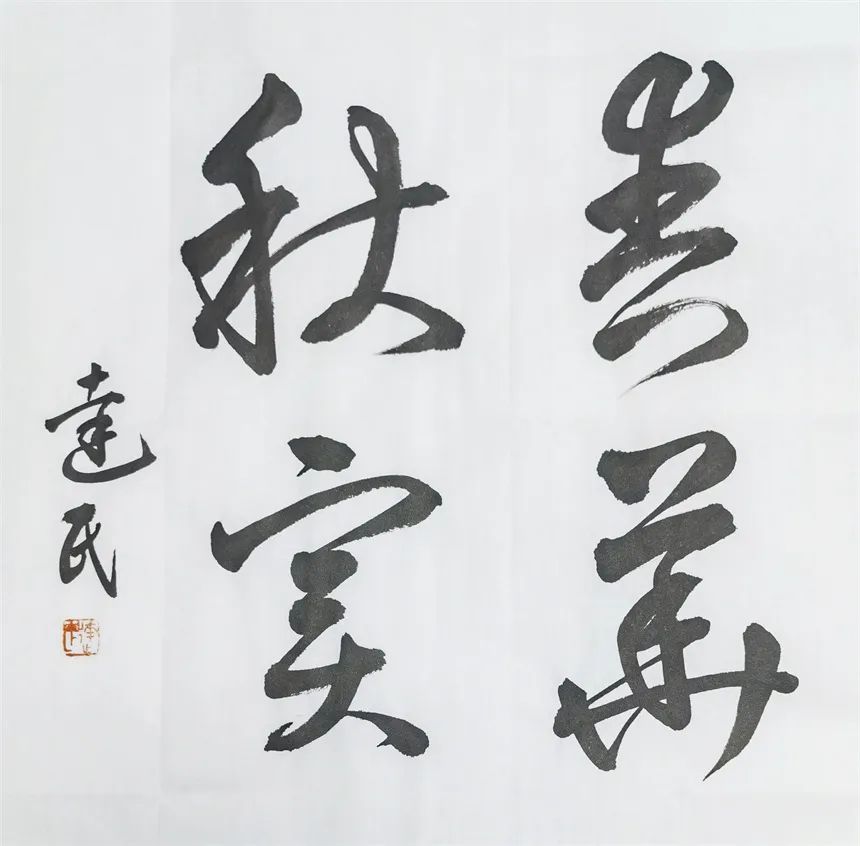 春華
秋实
達民